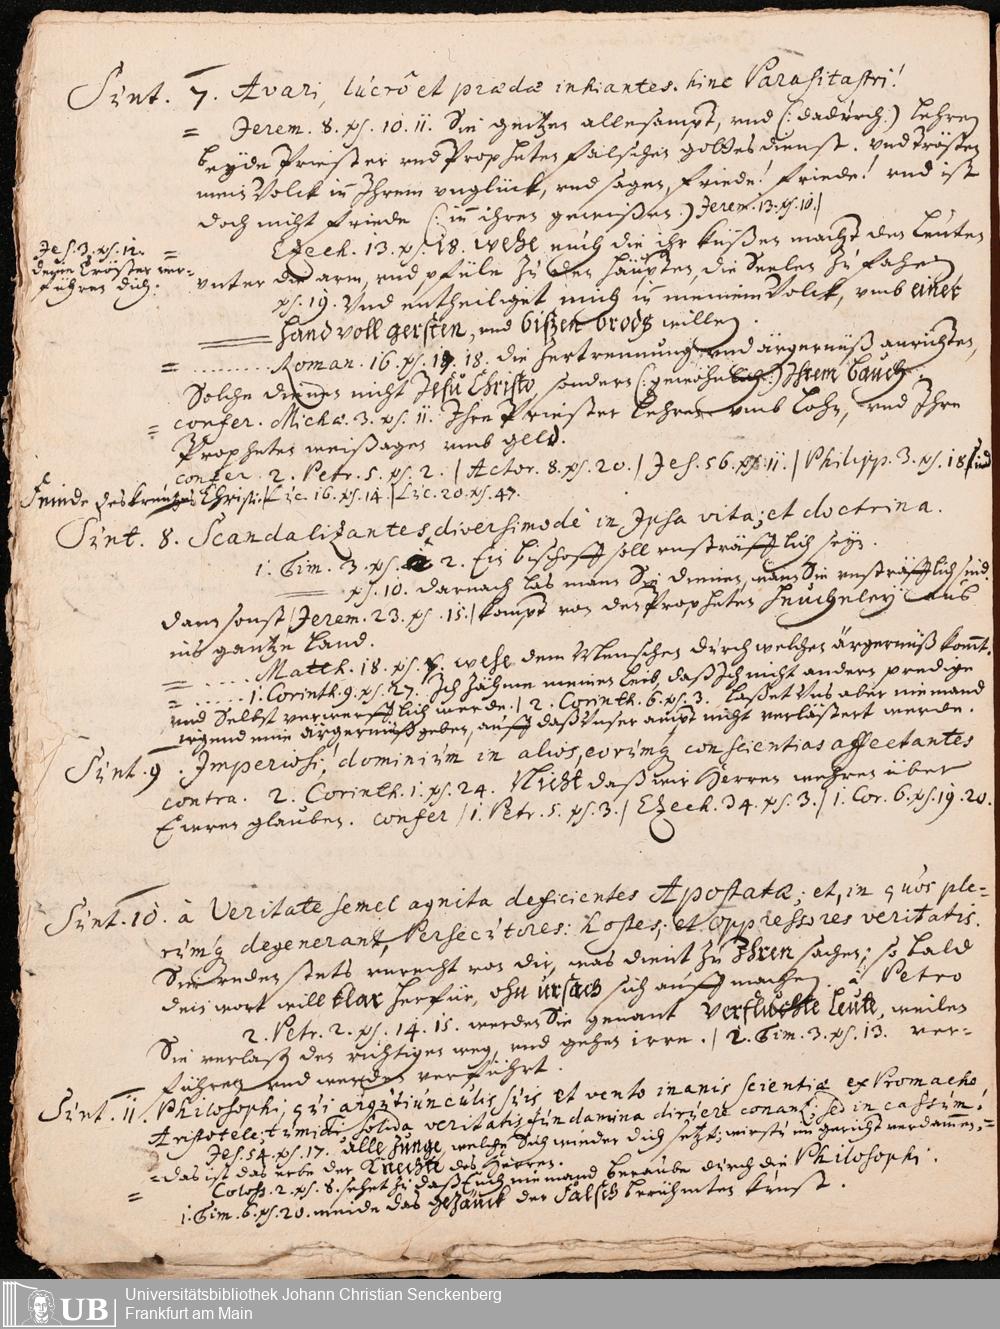 Sunt. 7. Avari, lucrô et prædæ inhiantes. hinc Parasitastri!
= Jerem. 8. ps. 10. 11. Sie geitzen allesampt, und (: dadurch :) Lehren
beyde Priester und Propheten falschen gottes dienst. und trösten
mein Volck in Ihrem unglück, und sagen, Friede! Friede! und ist
doch nicht Friede (: in ihren gewißen :) Jerem. 13. ps. 10. |
Jes. 3. ps. 12.
deine tröster ver-
führen dich.
= Ezech. 13. ps. 18. wehe euch die ihr küßen macht den Leuten
unter die arm, und pfüle zu den häupten, die Seelen zu fahen
ps. 19. Und entheiliget mich in meinem Volck, umb einer
hand voll gersten, und bißen brods willen.
= ........ Roman. 16. ps. 17. 18. die Zertrennung und ärgernüß anrichten,
Solche dienen nicht Jesu Christo, sondern Ihrem bauch.
= confer. Micha. 3. ps. 11. Ihre Priester Lehren umb Lohn, und Ihre
Propheten weißagen umb geld.
confer. 2. Petr. 5. ps. 2. | Actor. 8. ps. 20. | Jes. 56. ps. 11. | Philipp. 3. ps. 18. sind
Feinde des kreutzes Christi. | Luc. 16. ps. 14. | Luc. 20. ps. 47.
Sunt. 8. Scandalizantes diversimodè in Ipsa vita; et doctrina.
1. Tim. 3. ps. 2. Ein bischoff soll unsträfflich seyn.
ps. 10. darnach las mann Sie dienen, wann Sie unsträfflich sind.
dann sonst | Jerem. 23. ps. 15. | kompt von den Propheten heucheley aus
ins gantze Land.
= .... Matth. 18. ps. 7. wehe dem Menschen durch welchen ärgernüß kommt.
= ..... 1. Corinth. 9. ps. 27. Ich Zähme meinen leib, daß Ich nicht andern predige
und Selbst verwerfflich werde. | 2. Corinth. 6. ps. 3. Lasset Uns aber niemand
irgend eine ärgernüß geben, auff daß Unser ampt nicht verlästert werde.
Sunt. 9. Imperiosi, dominium in alios, eorumq conscientias affectantes
contra. 2. Corinth. 1. ps. 24. Nicht daß wir Herren wehren über
Eweren glauben. confer | 1. Petr. 5. ps. 3. | Ezech. 34. ps. 3. | 1. Cor. 6. ps. 19. 20.
Sunt. 10. à Veritate semel agnita deficientes Apostatæ; et, in quos ple-
rumq degenerant, Persecutores: hostes; et oppressores veritatis.
Sie reden stets unrecht von dir, was dient zu Ihren sachen; so bald
dein wort will klar herfür, ohn ursach sich auff machen. à Petro
2. Petr. 2. ps. 14. 15. werden Sie genant verfluchte leute, weilen
Sie verlaßen den richtigen weg, und gehen irre. | 2. Tim. 3. ps. 13. ver-
führen und werden verführt.
Sunt. 11. Philosophi, qui argutiunculis suis et vento inanis scientiæ ex Promacho
Aristotele, tumidi, solida veritatis fundamina diruere conant; sed in cassum!
Jes. 54. ps. 17. alle Zunge, welche Sich wieder dich setzt, wirstu im gericht verdammen,
= das ist das erbe der Knechte des Herren.
Coloss. 2. ps. 8. sehet zu daß Euch niemand beraube durch die Philosophi.
= 1. Tim. 6. ps. 20. meide das gezänck der falsch berühmten kunst.
UB
Universitätsbibliothek Johann Christian Senckenberg
Frankfurt am Main